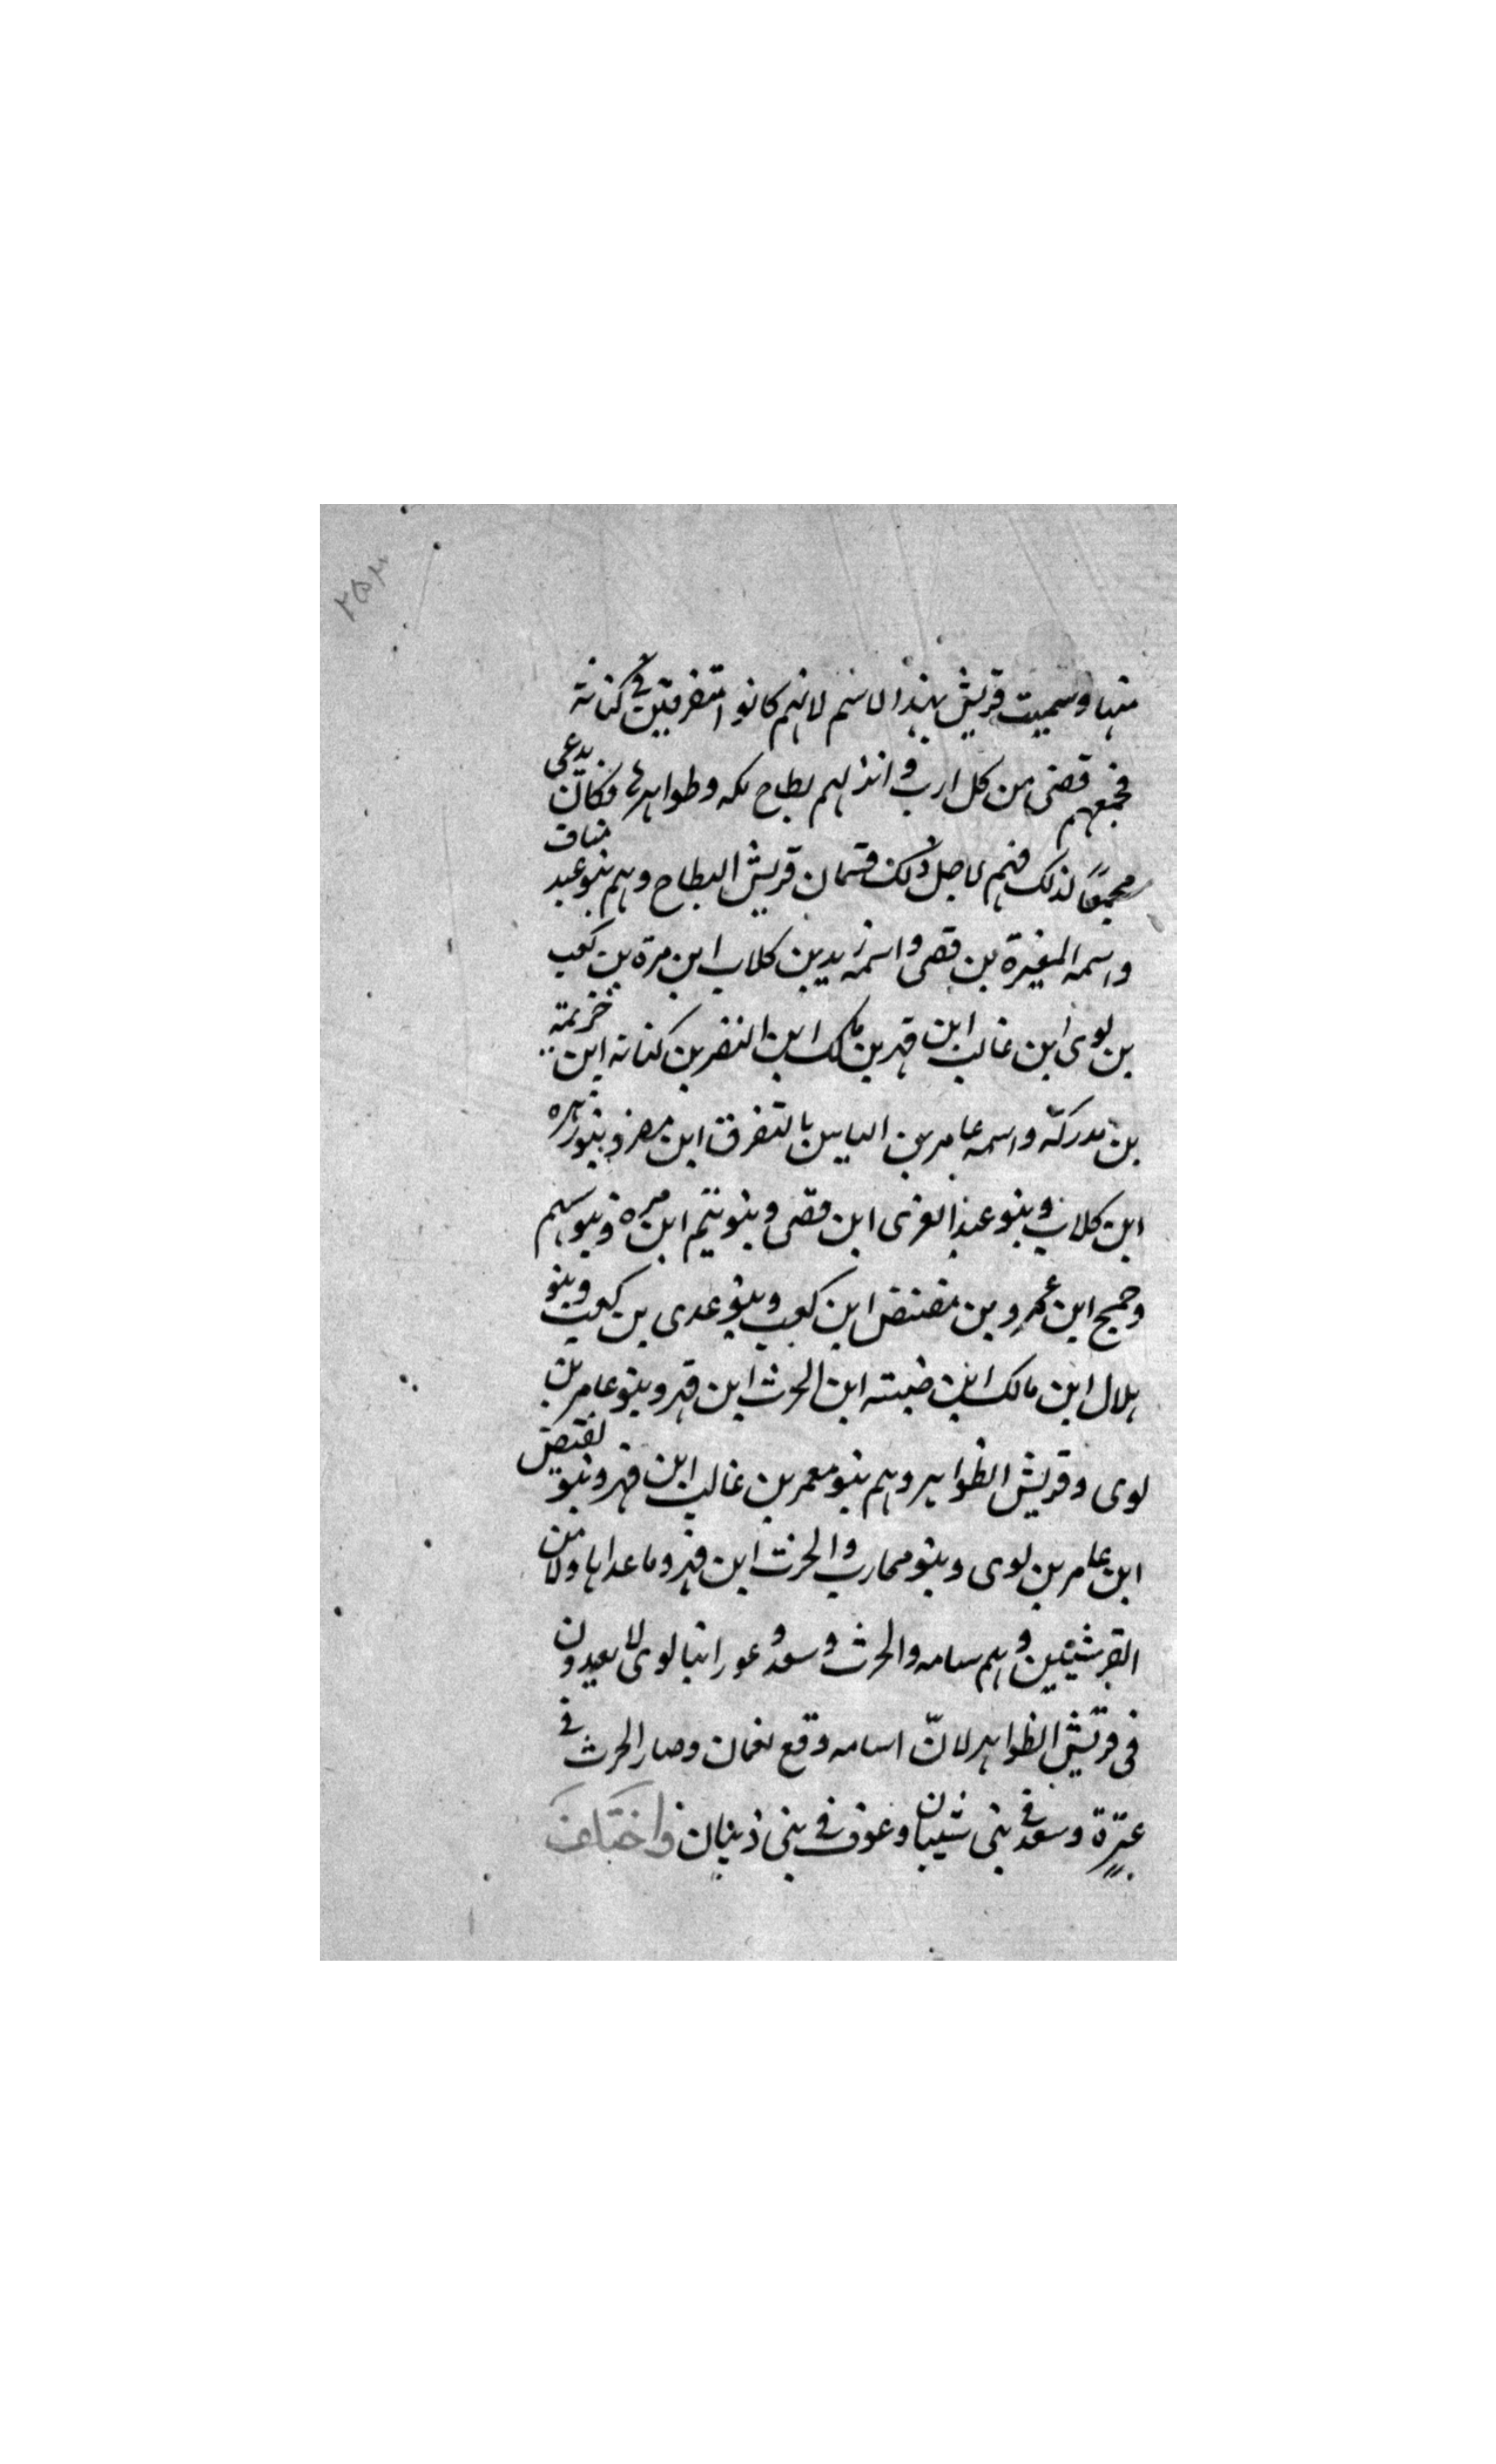 منها وسميت قريش بهذا الاسم لانهم كانوا متفرقين في كنانة
فجمعهم قصى من كل ارب وانزلهم بطاح مكه وظواهرها فكان يدعى
مجمعًا لذلك فهم لاجل ذلك قسمان قريش البطاح وهم بنو عبد مناف
واسمه المغيرة بن قصى واسمه زيد بن كلاب ابن مرة بن كعب
بن لوى ابن غالب ابن فهر بن مالك ابن النضر بن كنانه ابن خزيمة
بن مدركة واسمه عامر بن الياس بالتفرق ابن مضر وبنو زهره
ابن كلاب وبنو عبد العزى ابن قصى وبنو تيم ابن مره وبنو سهم
وجمح ابن عمرو بن هصيص ابن كعب وبنو عدى بن كعب وبنو
هلال ابن مالك ابن ضبته ابن الحرث ابن فهر وبنو عامر بن
لوى وقريش الظواهر وهم بنو معمر بن غالب ابن فهر وبنو بغيض
ابن عامر بن لوى وبنو محارب والحرث ابن فهر وما عداها ولا من
القرشيين وهم سامه والحرث وسعد و ابنا لوى لا يعدون
فى قريش الظواهر لانّ اسامه وقع نعمان وصار الحرث في
عنزة وسعد في بنى شيبان وعوف في بنى ذبيان واختلف
٢٥٣